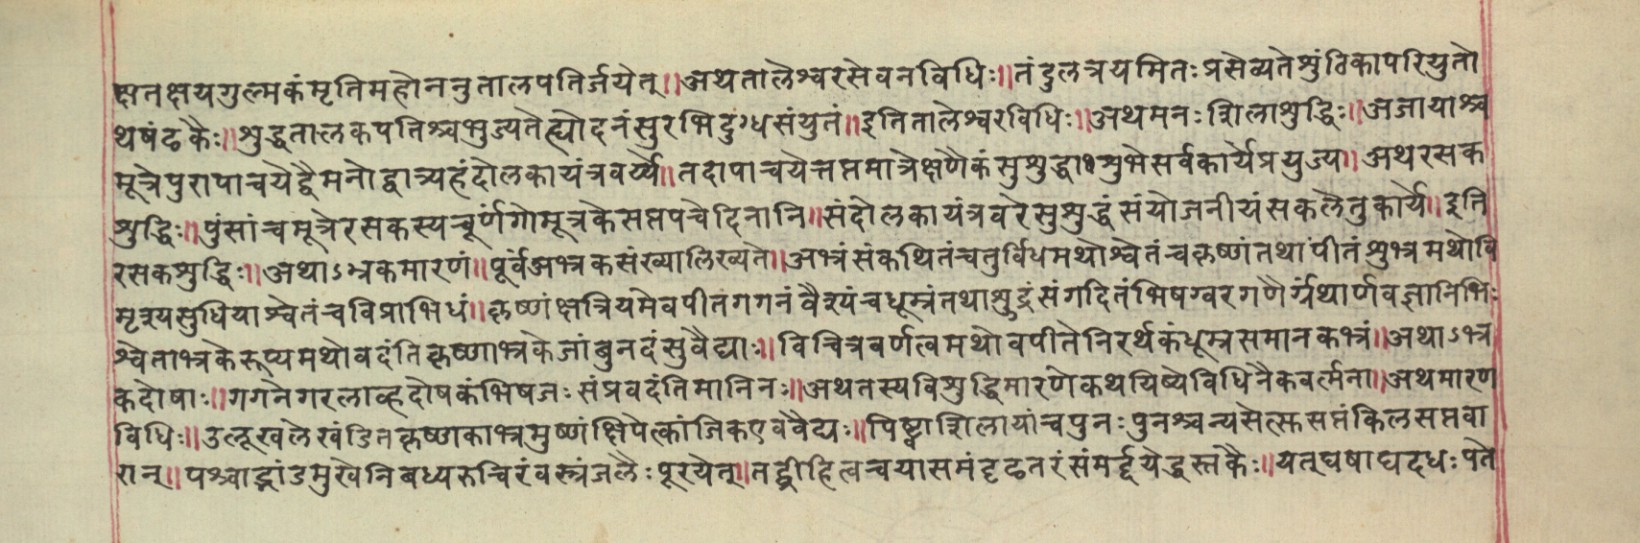 क्षतक्षयगुल्मकंमृतिमहोननुतालपतिर्जयेत्॥अथतालेश्वरसेवनविधिः॥तंदुलत्रयमितःप्रसेव्यतेशुंठिकापरियुतो
थषंढकैः॥शुद्धतालकपतिश्चभुज्यतेह्योदनंसुरभिदुग्धसंयुतं॥इतितालेश्वरविधिः॥अथमनःशिलाशुद्धिः॥अजायाश्च
मूत्रेपुरापाचयेद्वैमनोद्वात्र्यहंदोलकायंत्रवर्य्ये॥तदापाचयेत्तप्तमात्रेक्षणैकंसुशुद्धाशुभेसर्वकार्येप्रयुज्या॥अथरसक
शुद्धिः॥पुंसांचमूत्रेरसकस्यचूर्णंगोमूत्रकेसप्तपचेदिनानि॥संदोलकायंत्रवरेसुशुद्धंसंयोजनीयंसकलेतुकार्ये॥इति
रसकशुद्धिः॥अथाऽभ्रकमारणं॥पूर्वंअभ्रकसंख्यालिख्यते॥अभ्रंसंकथितंचतुर्विधमथोश्वेतंचकृष्णंतथापीतंशुभ्रमथोवि
मृश्यसुधियाश्वेतंचविप्राभिधं॥कृष्णंक्षत्रियमेवपीतगगनंवैश्यंचधूम्रंतथाशुद्रंसंगदितंभिषग्वरगणैर्ग्रंथार्णवज्ञानिभिः
श्वेताभ्रकेरूप्यमथोवदंतिकृष्णाभ्रकेजांबुनदंसुवैद्याः॥विचित्रवर्णत्वमथोवपीतेनिरर्थकंधूम्रसमानकभ्रं॥अथाऽभ्र
कदोषाः॥गगनेगरलाव्हदोषकंभिषजःसंप्रवदंतिमानिनः॥अथतस्यविशुद्धिमारणेकथयिष्येविधिनैकवर्त्मना॥अथमारण
विधिः॥उलूखलेखंडितकृष्णकाभ्रमुष्णंक्षिपेत्कांजिकएववैद्यः॥पिष्ट्वाशिलायांचपुनःपुनश्चन्यसेत्सप्तंकिलसप्तवा
रान्॥पश्चाद्भांडमुखेनिबध्यरुचिरंवस्त्रंजलैःपूरयेत्॥तद्व्रीहित्वचयासमंदृढतरंसंमर्द्दयेद्धस्तकैः॥यत्पषाघदधःपते